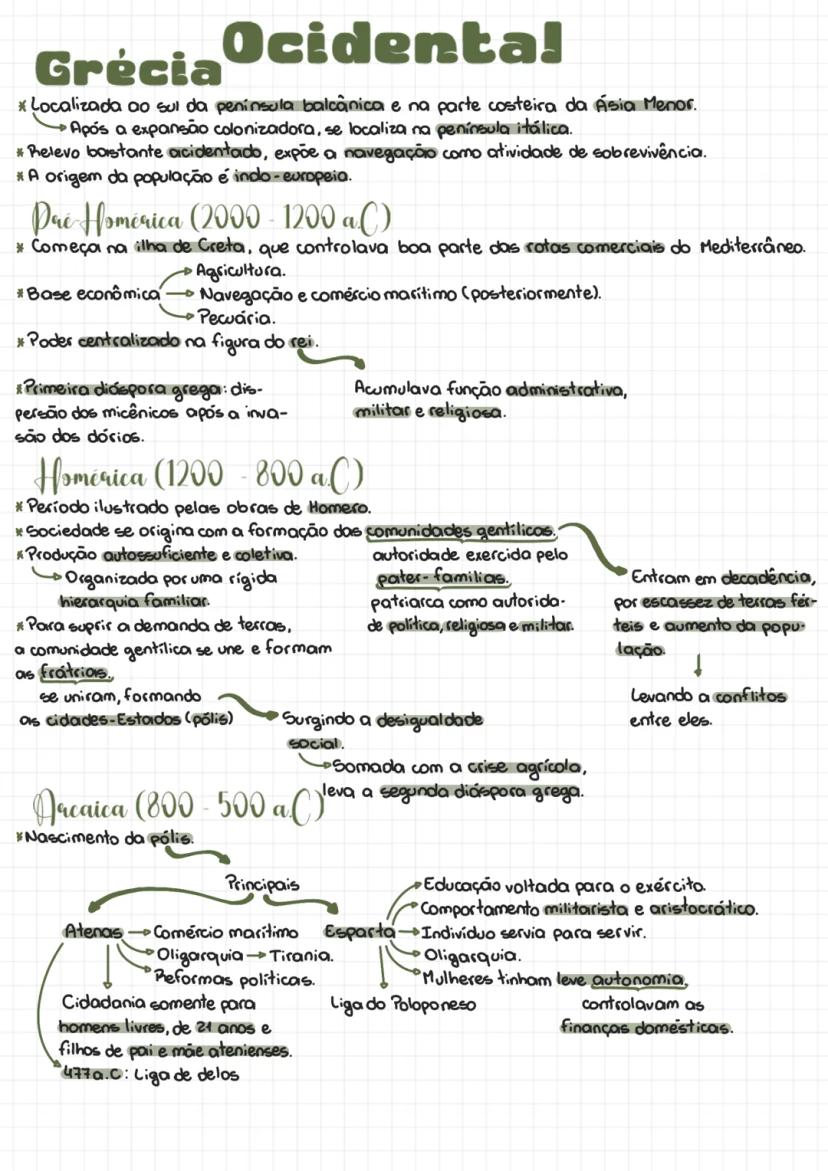 Grécia Ocidental
* Localizada ao sul da península balcânica e na parte costeira da Ásia Menor.
Após a expansão colonizadora, se localiza na península itálica.
* Relevo bastante acidentado, expõe a navegação como atividade de sobrevivência.
* A origem da população é indo-europeia.
Pré-Homérica (2000 - 1200 a.C)
* Começa na ilha de Creta, que controlava boa parte das rotas comerciais do Mediterrâneo.
Agricultura.
* Base econômica → Navegação e comércio marítimo (posteriormente).
Pecuária.
* Poder centralizado na figura do rei.
Acumulava função administrativa,
militar e religiosa.
* Primeira diáspora grega: dis-
persão dos micênicos após a inva-
são dos dórios.
Homérica (1200 - 800 a.C)
* Período ilustrado pelas obras de Homero.
* Sociedade se origina com a formação das comunidades gentílicas.
autoridade exercida pelo
pater-familias.
patriarca como autorida-
de política, religiosa e militar.
Entram em decadência,
por escassez de terras fér-
teis e aumento da popu-
lação.
Levando a conflitos
entre eles.
* Produção autossuficiente e coletiva.
Organizada por uma rígida
hierarquia familiar.
* Para suprir a demanda de terras,
a comunidade gentílica se une e formam
as frátrias.
se uniram, formando
as cidades-Estados (pólis)
Surgindo a desigualdade
social.
Somada com a crise agrícola,
leva a segunda diáspora grega.
Arcaica (800 - 500 a.C)
* Nascimento da pólis.
Principais
Atenas → Comércio marítimo
Oligarquia → Tirania.
Reformas políticas.
Cidadania somente para
homens livres, de 21 anos e
filhos de pai e mãe atenienses.
477 a.C: Liga de delos
Esparta
Educação voltada para o exército.
Comportamento militarista e aristocrático.
Indivíduo servia para servir.
Oligarquia.
Mulheres tinham leve autonomia,
controlavam as
finanças domésticas.
Liga do Poloponeso